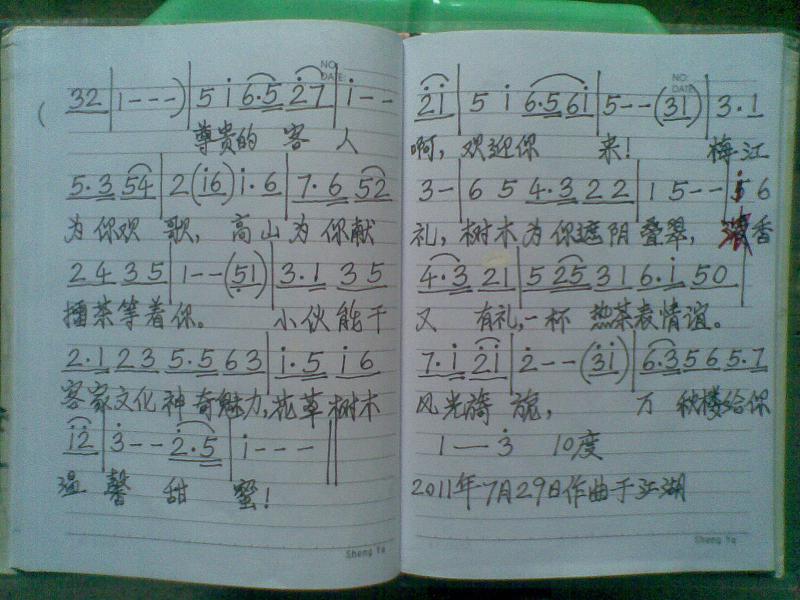 NO:
DATE:
NO:
DATE:
( 32 | 1 - - - ) | 5 i 6·5 27 | i - -
2i | 5 i 6·5 6i | 5 - - (31) | 3·1
尊贵的 客 人
啊，欢迎你 来! 梅江
5·3 54 | 2 (i6) i·6 | 7·6 52
3 - | 6 5 4·3 2 2 | 1 5 - - | 5 6
为你欢 歌，高山为你献
礼，树木为你遮阴叠翠， 香
2 4 3 5 | 1 - - (51) | 3·1 3 5
4·3 21 | 5 25 31 6·i 50 |
擂茶等着你。 小伙能干
又 有礼，一杯 热茶表情谊。
2·1 2 3 5·5 6 3 | i·5 i 6
7·i 2i | 2 - - (3i) | 6·3 5 6 5·7
客家文化神奇魅力，花草树木
风光旖 旎， 万秋楼给你
i2 | 3 - - 2·5 | i - - - ||
1 — 3 10度
温 馨 甜 蜜!
2011年7月29日作曲于江湖
Sheng Ya
Sheng Ya